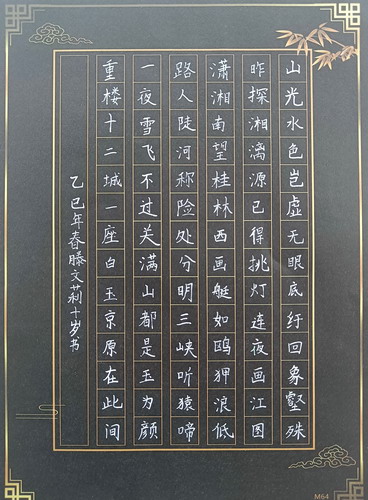 山光水色岂虚无眼底纡回象壑殊
昨探湘漓源已得挑灯连夜画江图
潇湘南望桂林西画艇如鸥狎浪低
路人陡河称险处分明三峡听猿啼
一夜雪飞不过关满山都是玉为颜
重楼十二城一座白玉京原在此间
乙巳年春滕文莉十岁书
M64